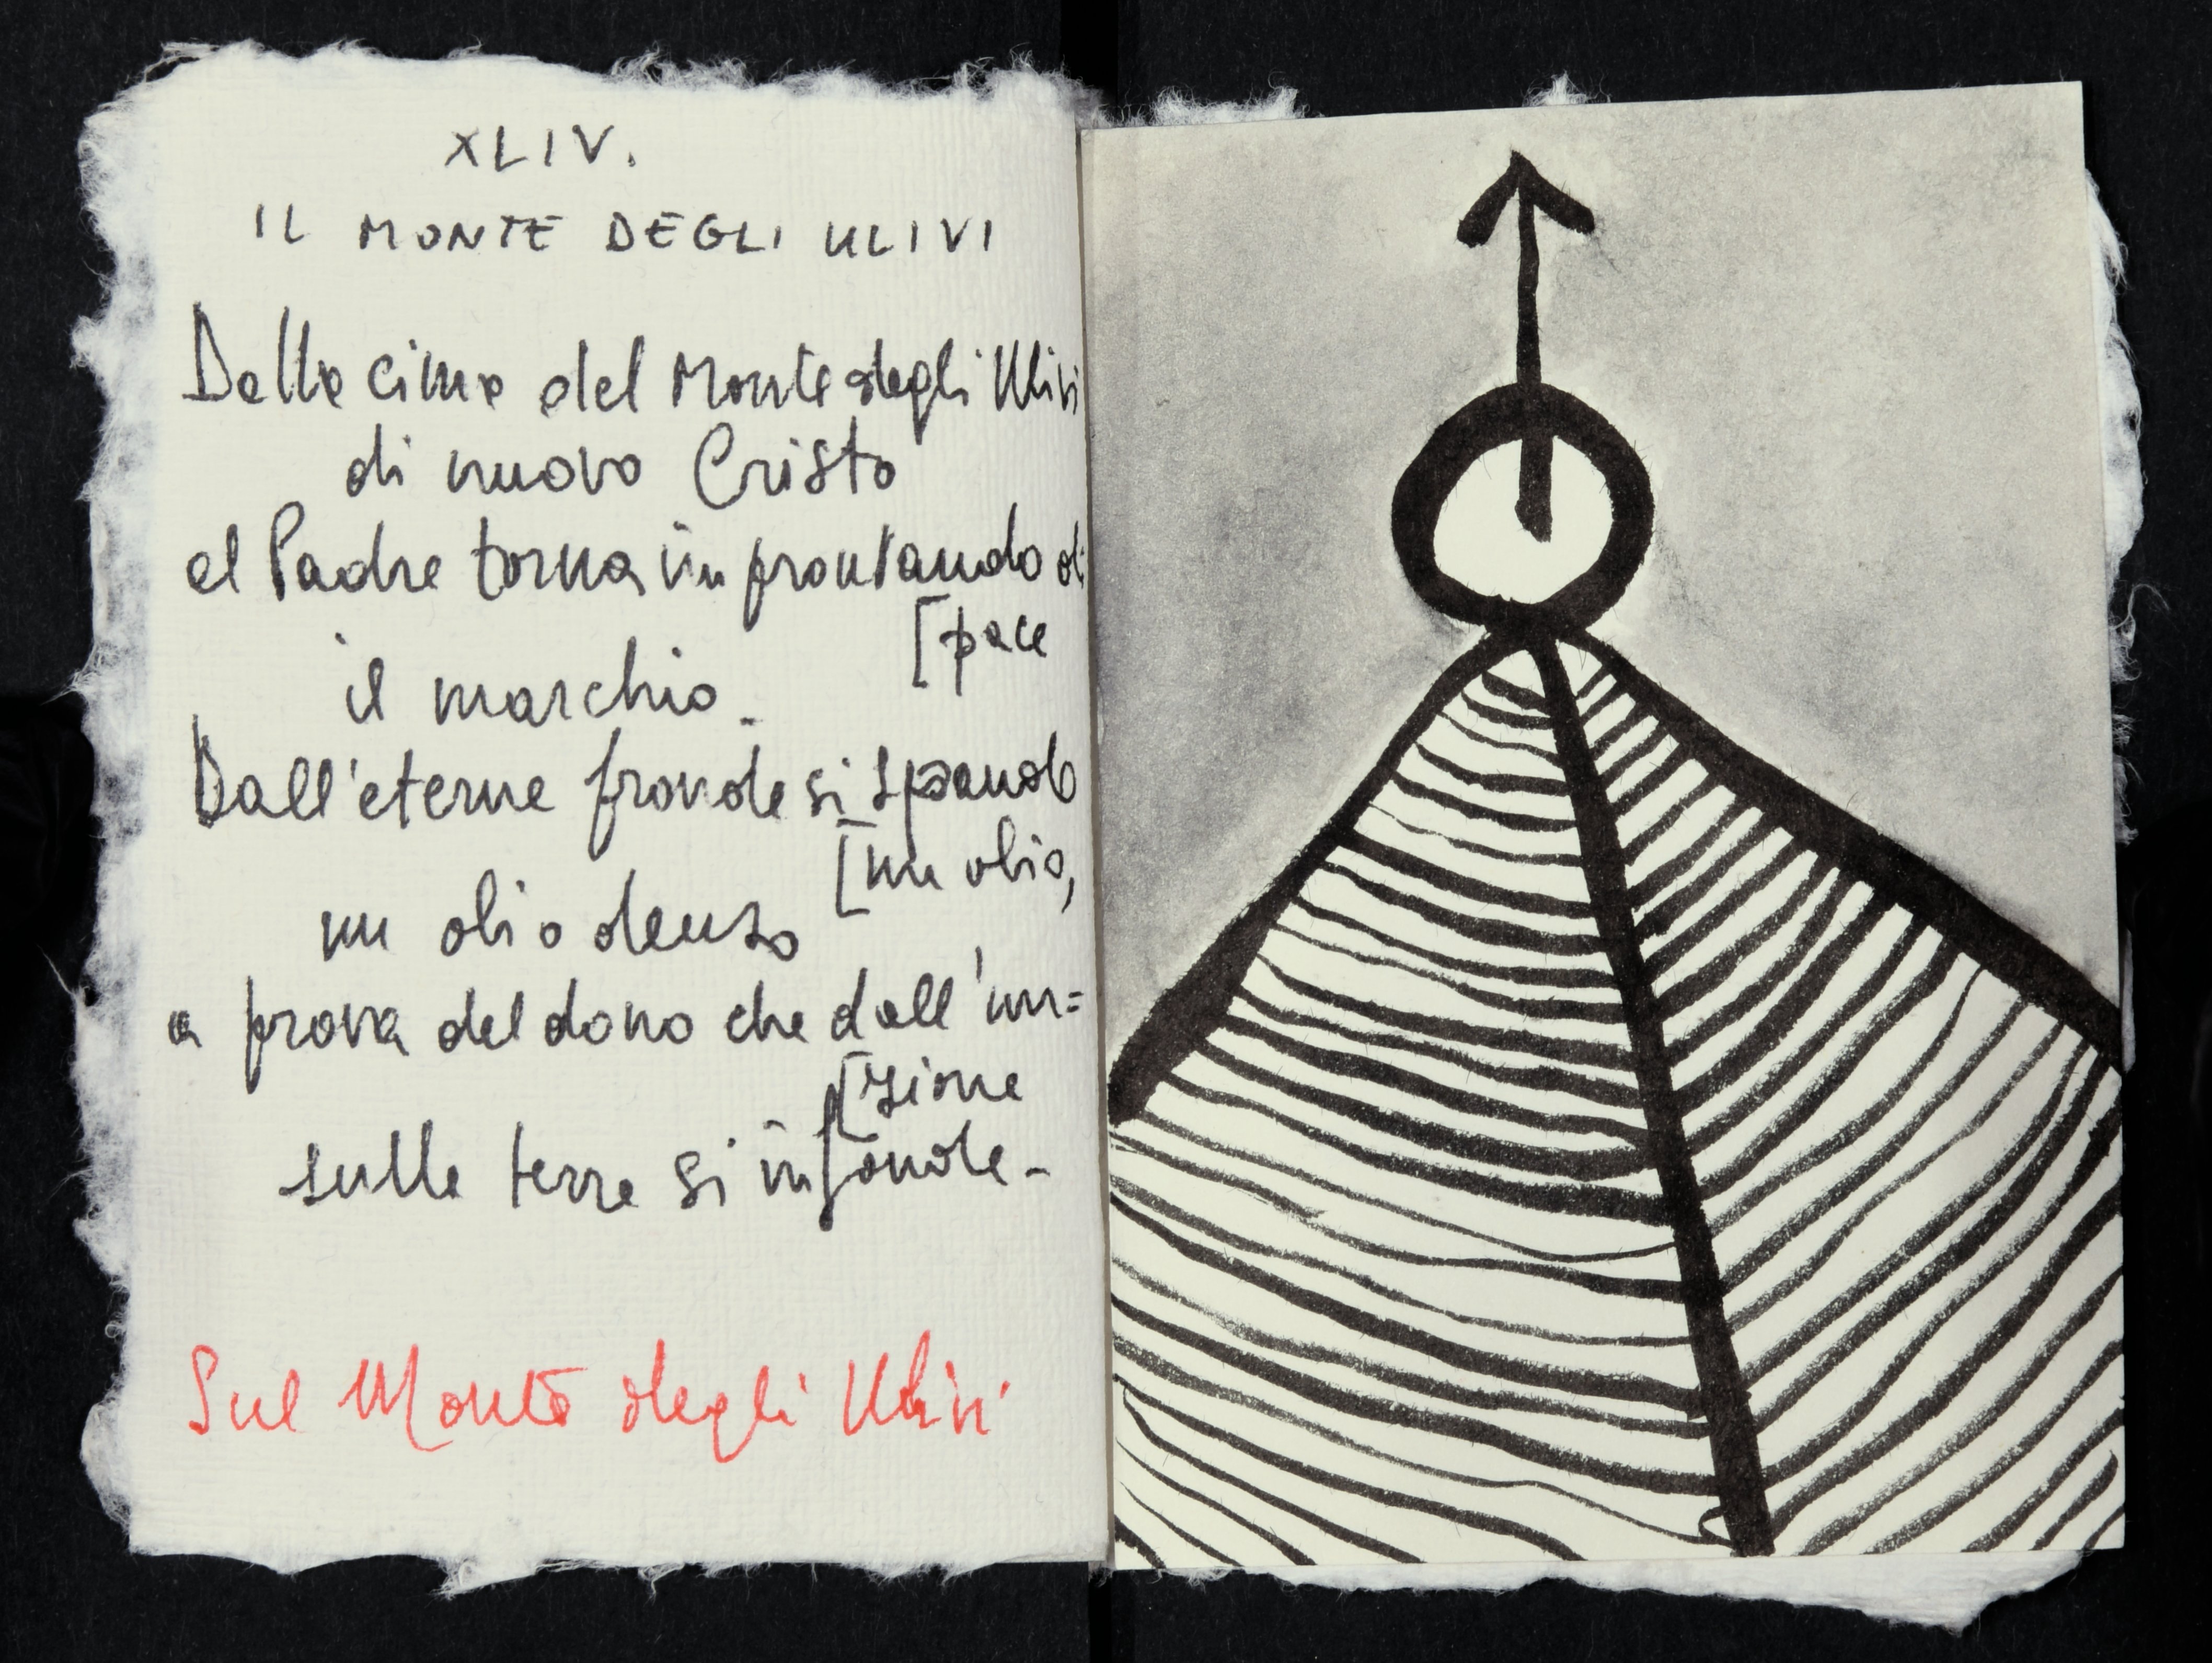 XLIV.
IL MONTE DEGLI ULIVI
Dalla cima del Monte degli Ulivi
di nuovo Cristo
al Padre torna improntando di
[pace
il marchio.
Dall'eterne fronde si spande
[un olio,
un olio denso
a prova del dono che dall'un=
[zione
sulla terra si infonde.
Sul Monte degli Ulivi